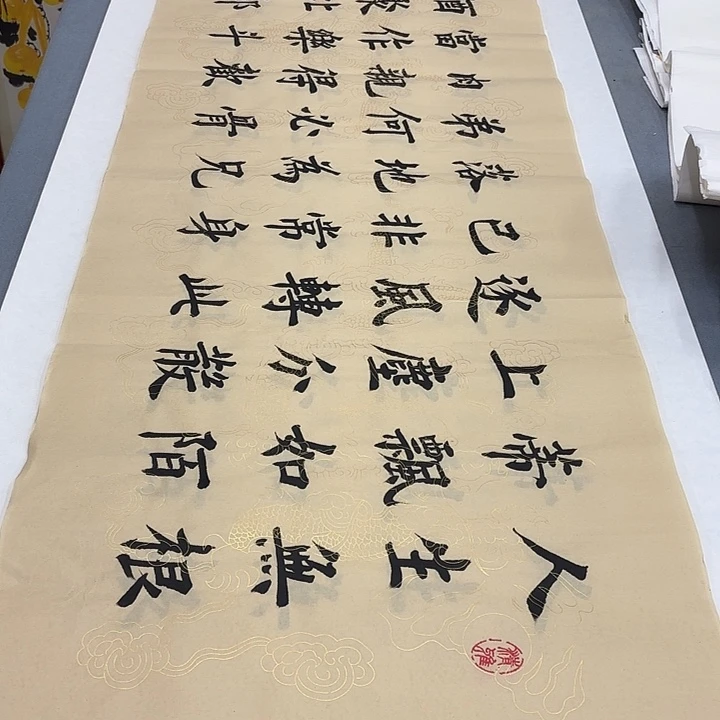 人生無根
蒂飄如陌
上塵分散
逐風轉此
已非常身
落地為兄
弟何必骨
肉親得歡
當作樂斗
酒聚比鄰